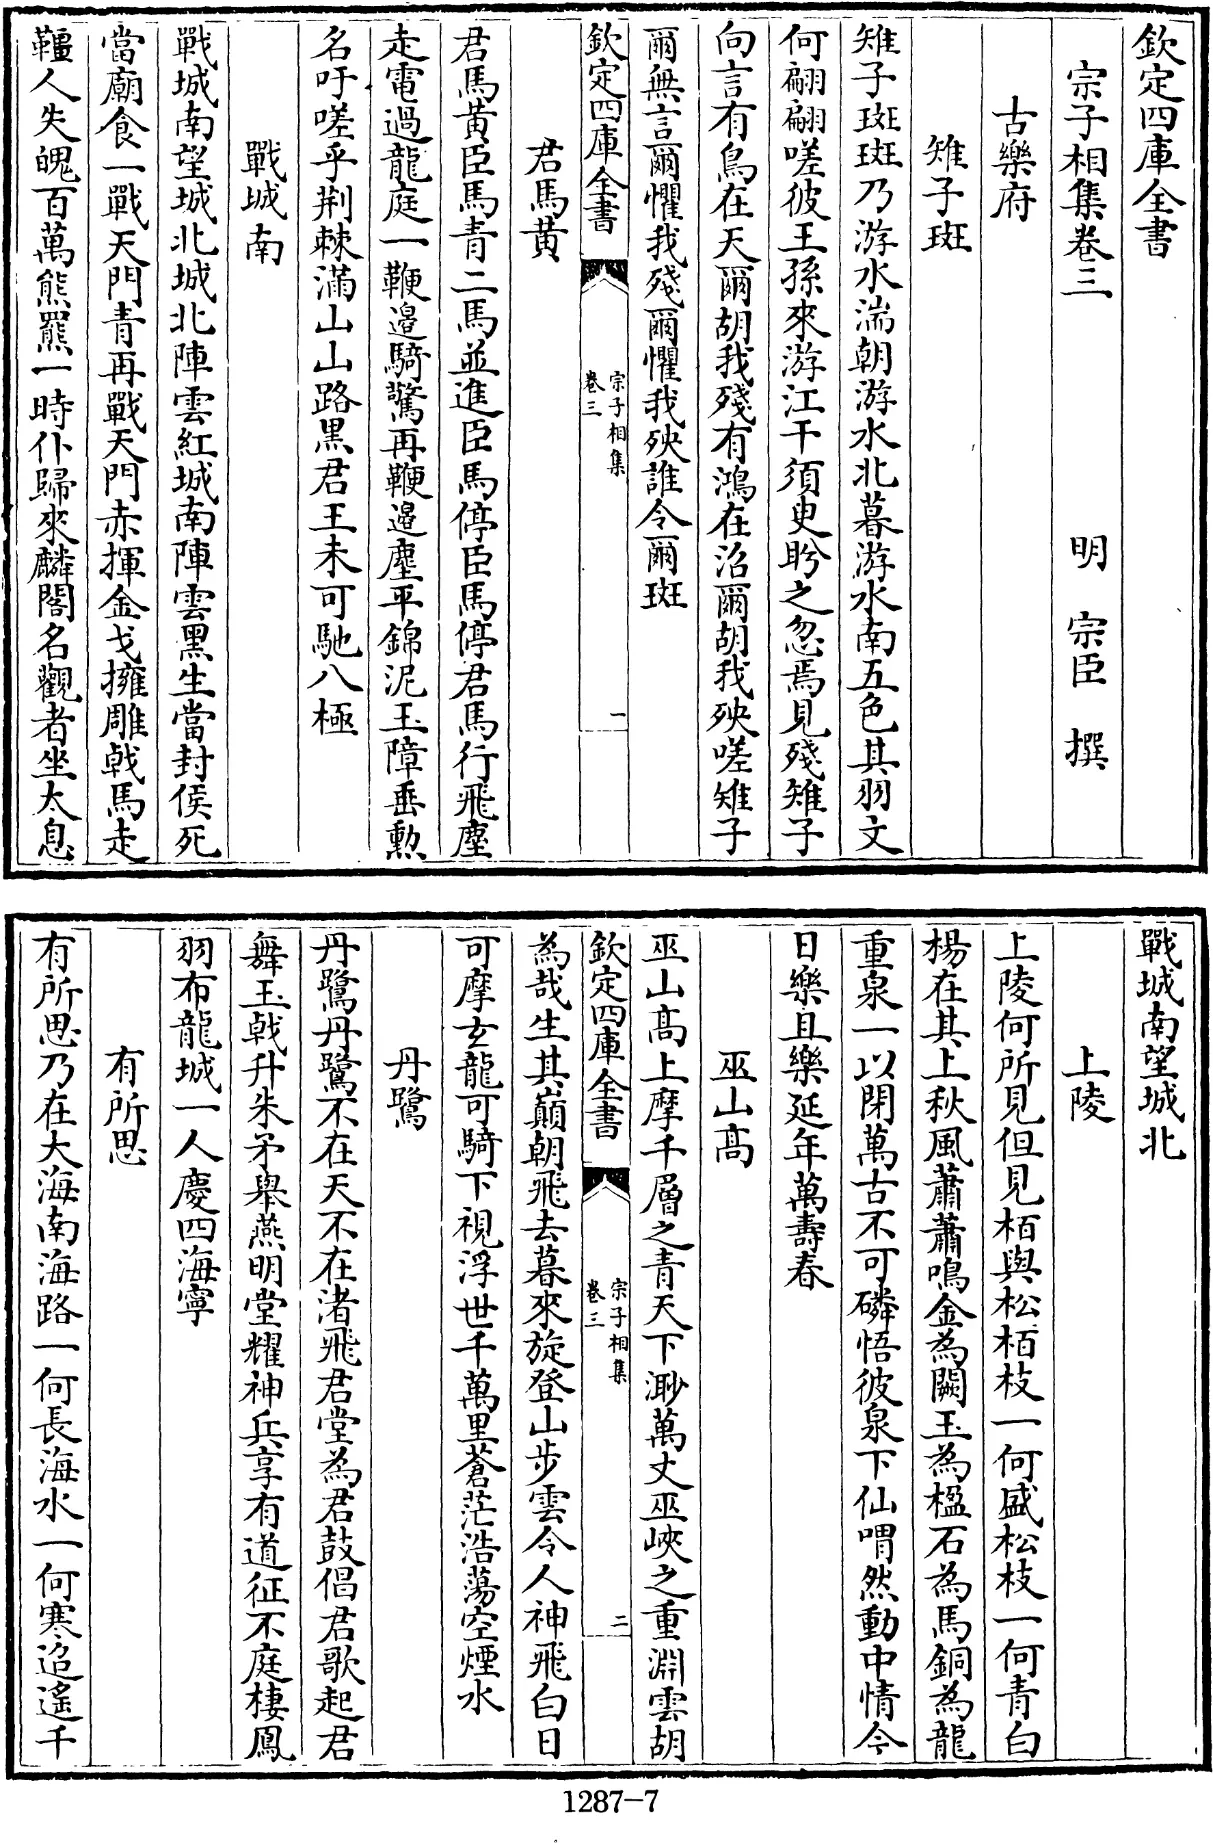 欽定四庫全書
宗子相集卷三
明 宗臣 撰
古樂府
雉子斑
雉子斑斑乃游水湍朝游水北暮游水南五色其羽文
何翩翩嗟彼王孫來游江干須臾盻之忽焉見殘雉子
向言有鳥在天爾胡我殘有鴻在沼爾胡我殃嗟雉子
爾無言爾懼我殘爾懼我殃誰令爾斑
欽定四庫全書
宗子相集
卷三
一
君馬黃
君馬黃臣馬青二馬並進臣馬停臣馬停君馬行飛塵
走電過龍庭一鞭邉騎驚再鞭邉塵平錦泥玉障垂勲
名吁嗟乎荆棘滿山山路黒君王未可馳八極
戰城南
戰城南望城北城北陣雲紅城南陣雲黒生當封侯死
當廟食一戰天門青再戰天門赤揮金戈擁雕戟馬走
韁人失魄百萬熊羆一時仆歸來麟閣名觀者坐太息
戰城南望城北
上陵
上陵何所見但見栢與松栢枝一何盛松枝一何青白
楊在其上秋風蕭蕭鳴金為闕玉為楹石為馬銅為龍
重泉一以閉萬古不可磷悟彼泉下仙喟然動中情今
日樂且樂延年萬壽春
巫山髙
巫山髙上摩千層之青天下渺萬丈巫峽之重淵雲胡
欽定四庫全書
宗子相集
卷三
二
為哉生其巔朝飛去暮來旋登山步雲令人神飛白日
可摩玄龍可騎下視浮世千萬里蒼茫浩蕩空煙水
丹鷺
丹鷺丹鷺不在天不在渚飛君堂為君鼓倡君歌起君
舞玉戟升朱矛舉燕明堂耀神兵享有道征不庭棲鳳
羽布龍城一人慶四海寧
有所思
有所思乃在大海南海路一何長海水一何寒迢遙千
1287-7